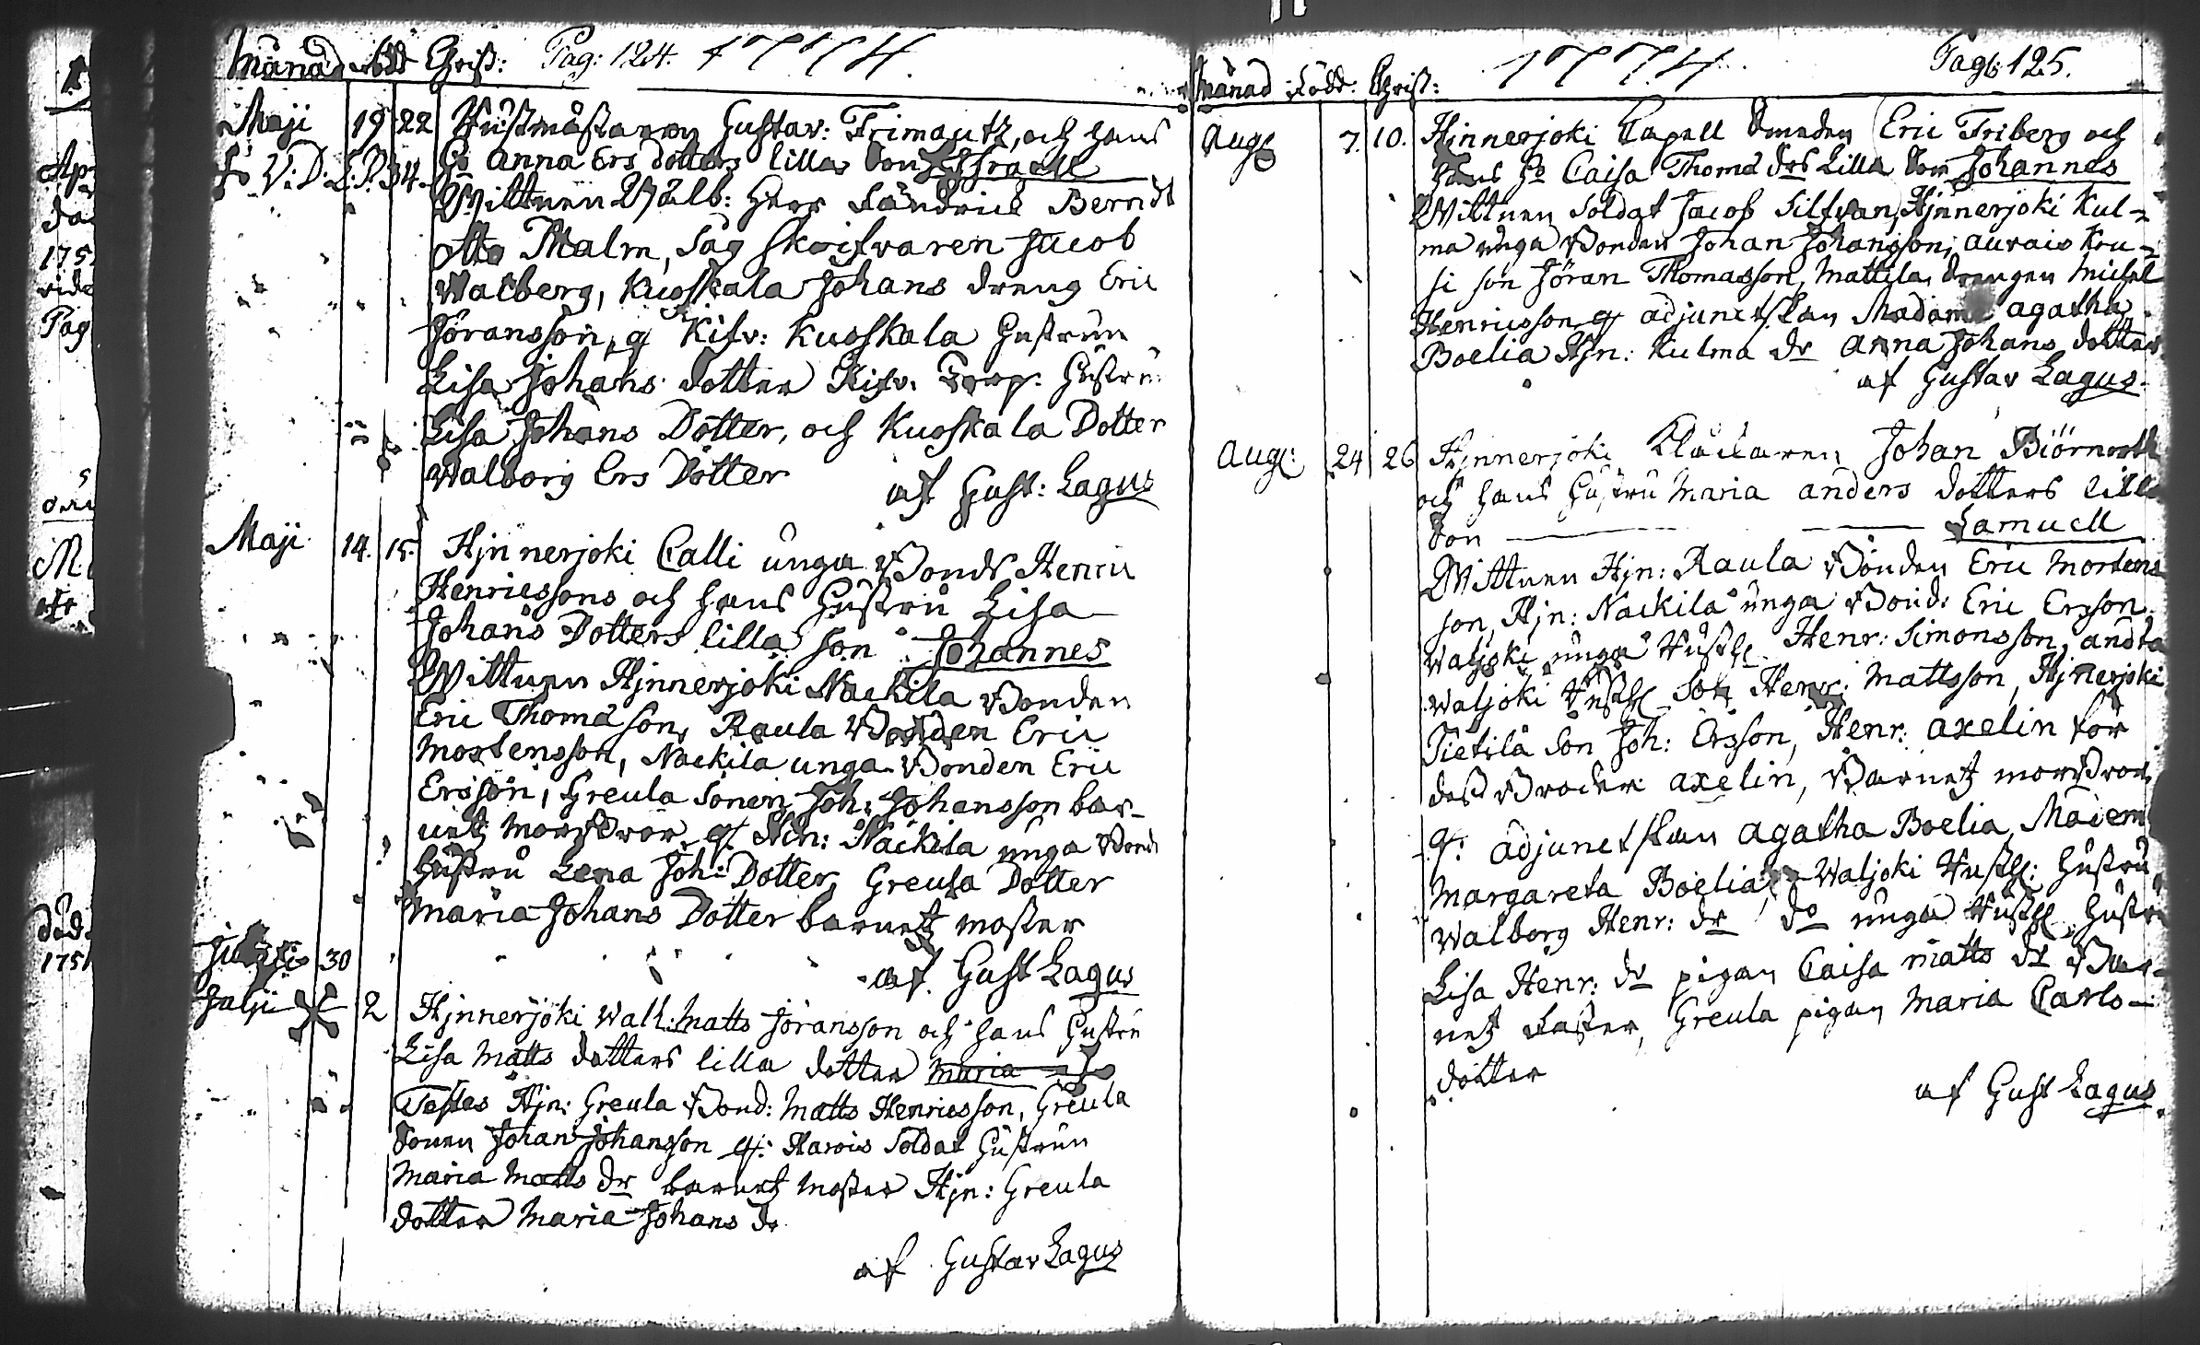 Månad Född Christ: Pag: 124. 1774.
Maji 19 22 Hüstmåstaren Gustav: Trimautz, och hans
V.D. L.P. 34. Ho anna Ers dotters lilla Son Israell
Wittnen Wälb: Herr Fändrick Berndt
Otto Malm, Såg Skrifvaren Jacob
Walberg, Kuoskala Johans dreng Eric
Jöransson, q Kifv: Kuoskala Hustrun
Lisa Johans dotter Kifv. Torp: Hüstru
Lisa Johans Dotter, och Kuoskala Dotter
Walborg Ers Dotter af Gust: Lagus
Maji 14. 15. Hjnnerjoki Calli unga Bonds Henric
Henricssons och hans Hustru Lisa
Johans Dotters lilla son Johannes
Wittnen Hjnnerjoki Nackila Bonden
Eric Thomasson, Raula Bonden Eric
Mortensson, Nackila unga Bonden Eric
Ersson, Greula Sonen Joh: Johansson bar-
netz morbror q. Hin: Nackila unga Bond
Hustru Lena Joh: Dotter, Greula Dotter
Maria Johans Dotter barnetz moster
30 af Gust Lagus
Julji 2 Hjnnerjoki Wall: Matts Jöransson och hans Hustru
Lisa Matts dotters lilla dotter Maria
Testes Hjn: Greula Bond: Matts Henricsson, Greula
Sonen Johan Johansson q: Karvis Soldat Hüstrun
Maria Matts dr barnetz Moster Hjn: Greula
dotter Maria Johans dr
af Gustav Lagus
Månad Född: Christ: 1774. Pag: 125.
Aug 7. 10. Hinnerjoki Capell Smeden Eric Friberg och
hans Ho Caisa Thoma drs Lilla Son Johannes
Wittnen Soldat Jacob Silfvan, Hjnnerjoki Kul-
ma unga Bonden Johan Johansson, aurais Kru-
si son Jöran Thomasson, Mattila drengen Michel
Henricsson q adjunctskan Madam agatha
Boelia Hjn: Kulma dr Anna Johans dotter
af Gustav Lagus.
Aug: 24 26 Hjnnerjoki Klåckaren Johan Biörnroth
och hans Hustru Maria anders dotters lilla
Son Samuell
Wittnen Hjn: Raula Bonden Eric Mortens
son, Hjn: Nackila unga Bond: Eric Ersson
Waljoki unga Hüsth Henr: Simonsson, andra
Waljoki Hüsth Son Henr: Mattsson, Hjnerjoki
Tietilä Son Joh: Ersson, Henr: Axelin för
dess Broder axelin, Barnetz morbror,
q: adjunctskan Agatha Boelia, Madem
Margareta Boelia, Waljoki Husth: Hustru
Walborg Henr: dr do unga Hüsth Hustru
Lisa Henr: dr pigan Caisa Matts dr Bar-
netz Faster, Greula pigan Maria Carls-
dotter
af Gust Lagus